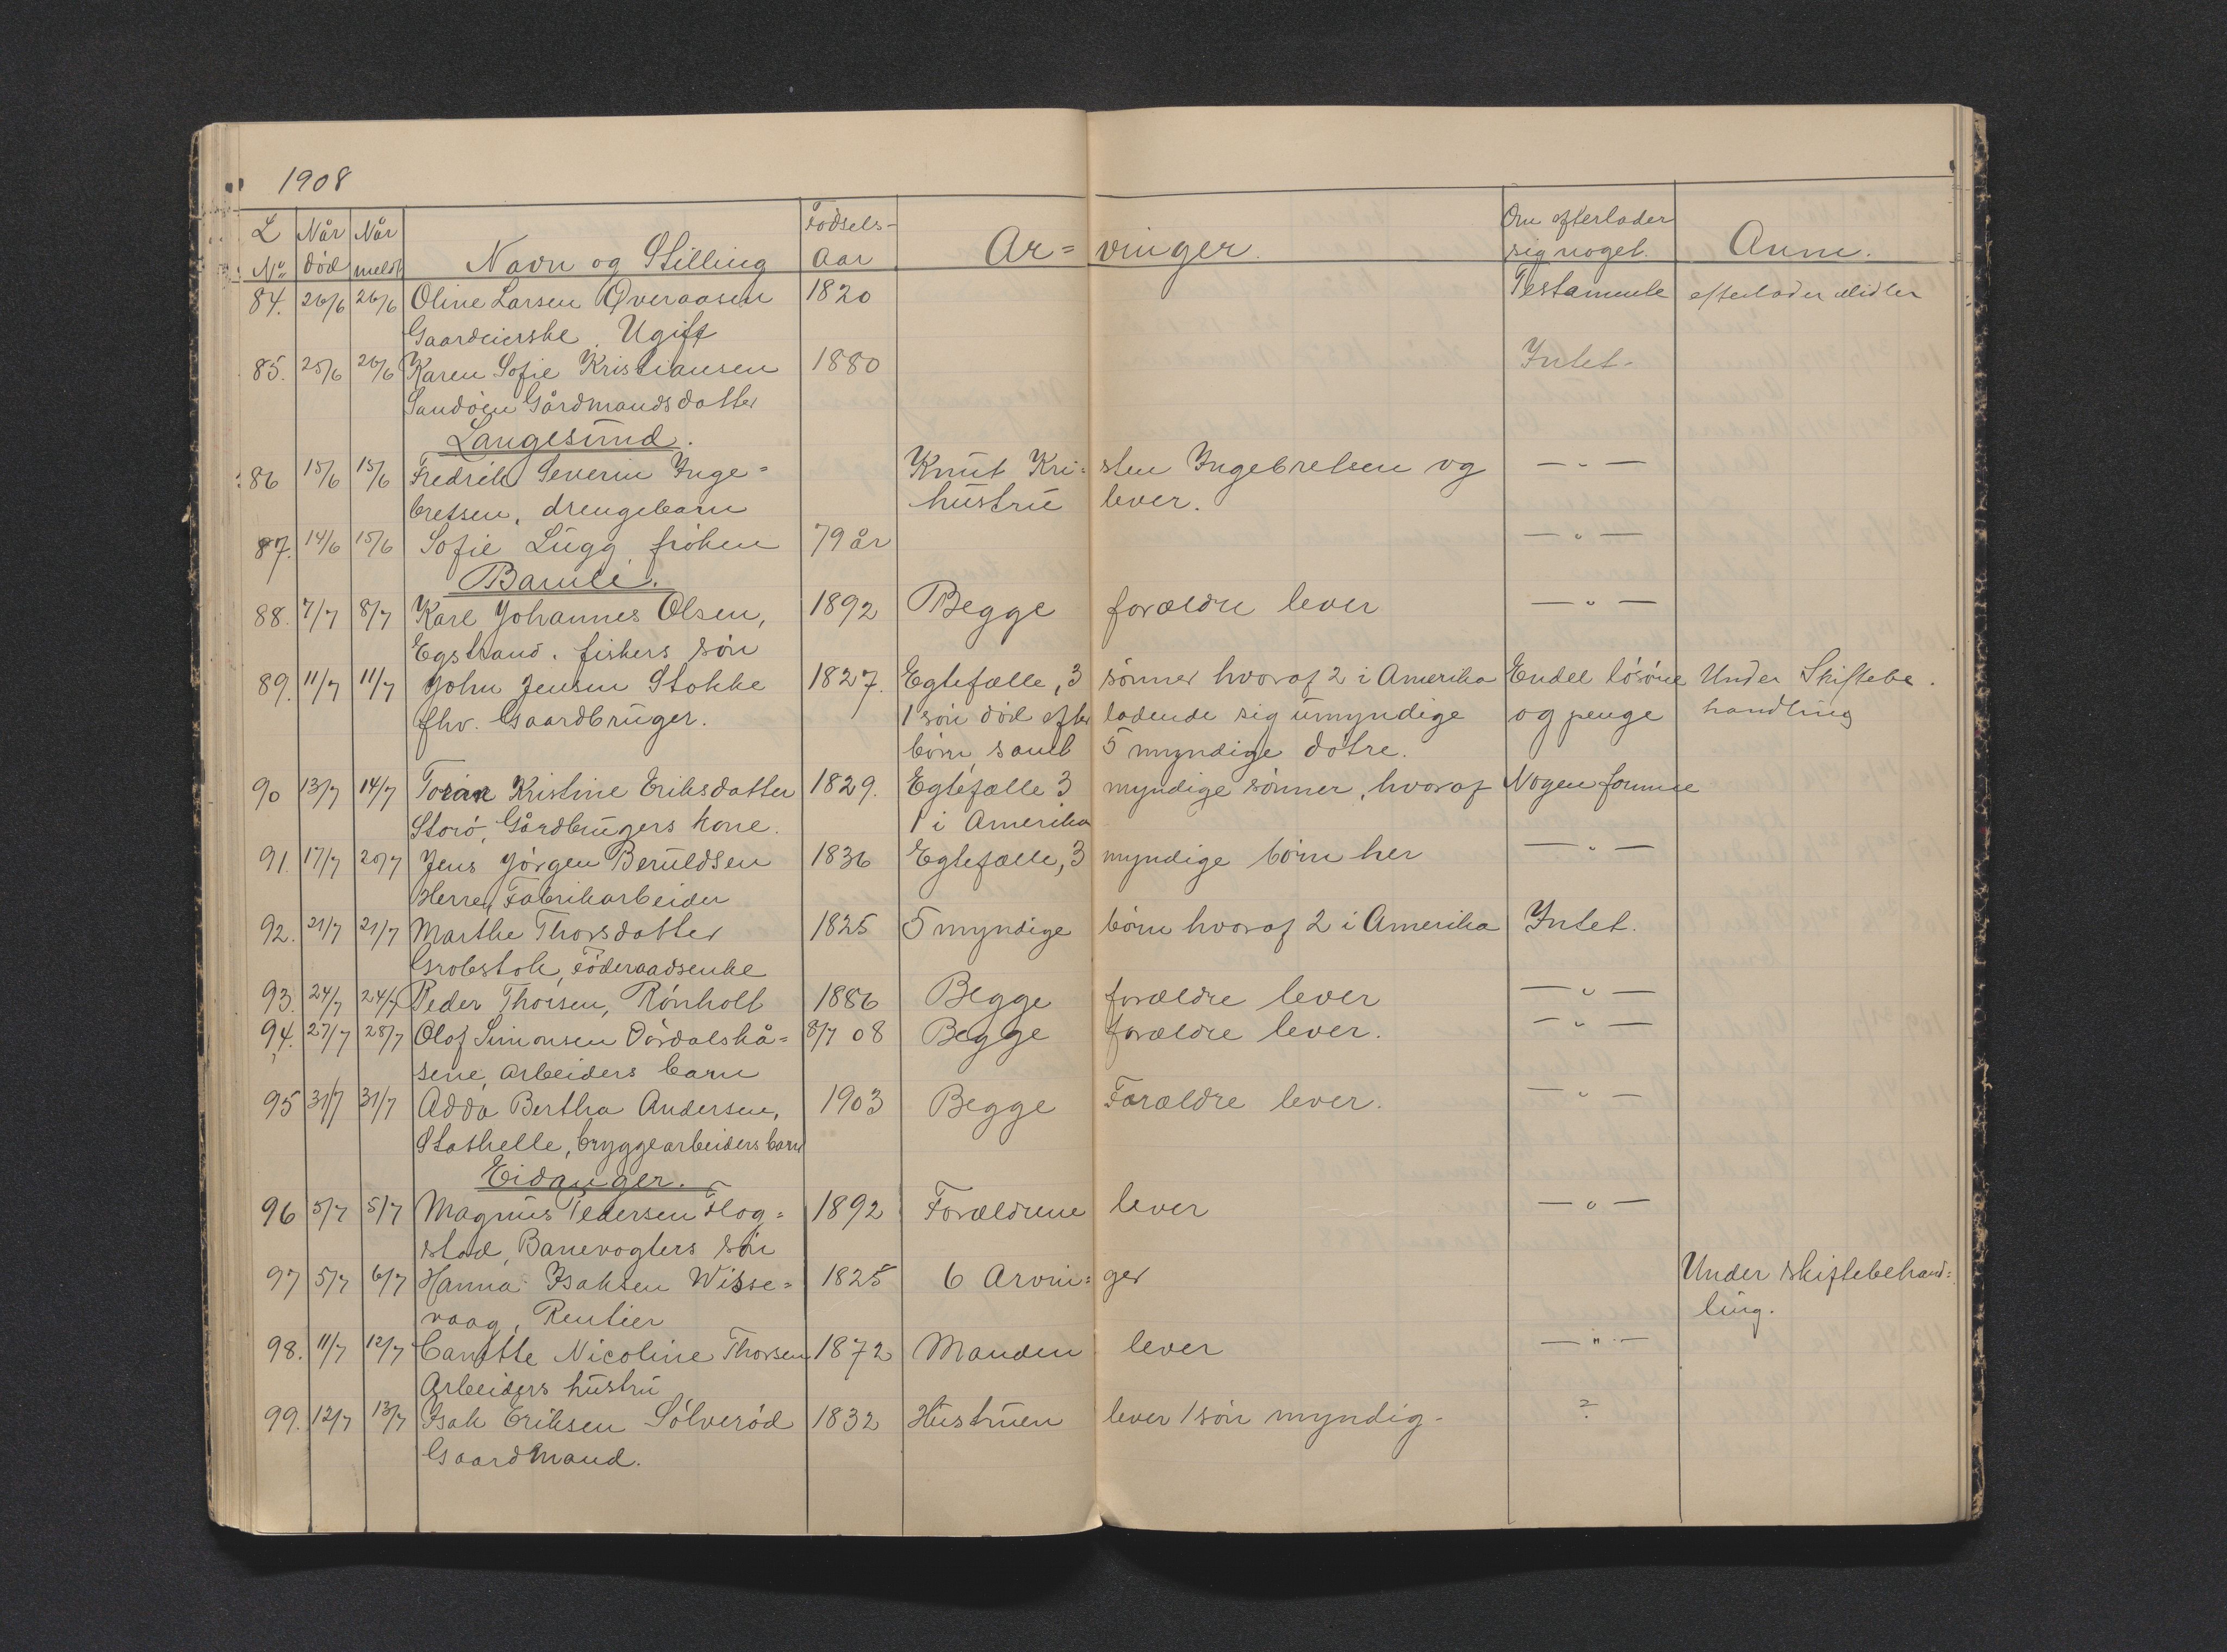 1908
L Når Når Fødsels- Om efterlader
No død meldt Navn og Stilling Aar Ar= vinger. sig noget. Anm.
84. 26/6 26/6 Oline Larsen Øveraasen 1820 Testamente efterlader Midler
Gaardeierske, Ugift
85. 25/6 26/6 Karen Sofie Kristiansen 1880 Intet-
Sandöen Gårdmandsdatter
Langesund.
86 15/6 15/6 Fredrik Severin Inge= Knut Kri= sten Ingebretsen og — " —
bretsen, drengebarn hustru lever.
87. 14/6 15/6 Sofie Lugg frøken 79 år — " —
Bamle.
88. 7/7 8/7 Karl Johannes Olsen, 1892 Begge forældre lever — " —
Egstrand. fiskers søn
89. 11/7 11/7 John Jensen Stokke 1827. Egtefælle, 3 sønner hvoraf 2 i Amerika Endel løsøre Under Skiftebe.
fhv. Gaardbruger. 1 søn død efter ladende sig umyndige og penge handling
børn, samt 5 myndige døtre.
90 13/7 14/7 Toran Kristine Eriksdatter 1829. Egtefælle 3 myndige sønner, hvoraf Nogen formue
Storö, Gårdbrugers kone. 1 i Amerika
91. 17/7 20/7 Jens Jörgen Beruldsen 1836 Egtefælle, 3 myndige børn her — " —
Herre, Fabrikarbeider
92. 21/7 21/7 Marthe Thorsdatter 1825 5 myndige børn hvoraf 2 i Amerika Intet.
Grobstok, Föderaadsenke
93. 24/7 24/7 Peder Thorsen, Rönholt 1886 Begge forældre lever — " —
94. 27/7 28/7 Olof Simonsen Dördalskå= 8/7 08 Begge forældre lever. — " —
sene, Arbeiders barn
95 31/7 31/7 Adda Bertha Andersen, 1903 Begge Forældre lever. — " —
Stathelle, bryggearbeiders barn
Eidanger.
96 5/7 5/7 Magnus Pedersen Flog= 1892 Forældrene lever — " —
stad, Banevogters søn
97 5/7 6/7 Hanna Isaksen Wisse= 1825 6 Arvin= ger Under skiftebehand=
vaag, Rentier ling.
98. 11/7 12/7 Nicoline Thorsen 1872 Manden lever — " —
Arbeiders hustru
99. 12/7 13/7 Isak Eriksen Sölveröd 1832 Hustruen lever 1 søn myndig- ?
Gaardmand.